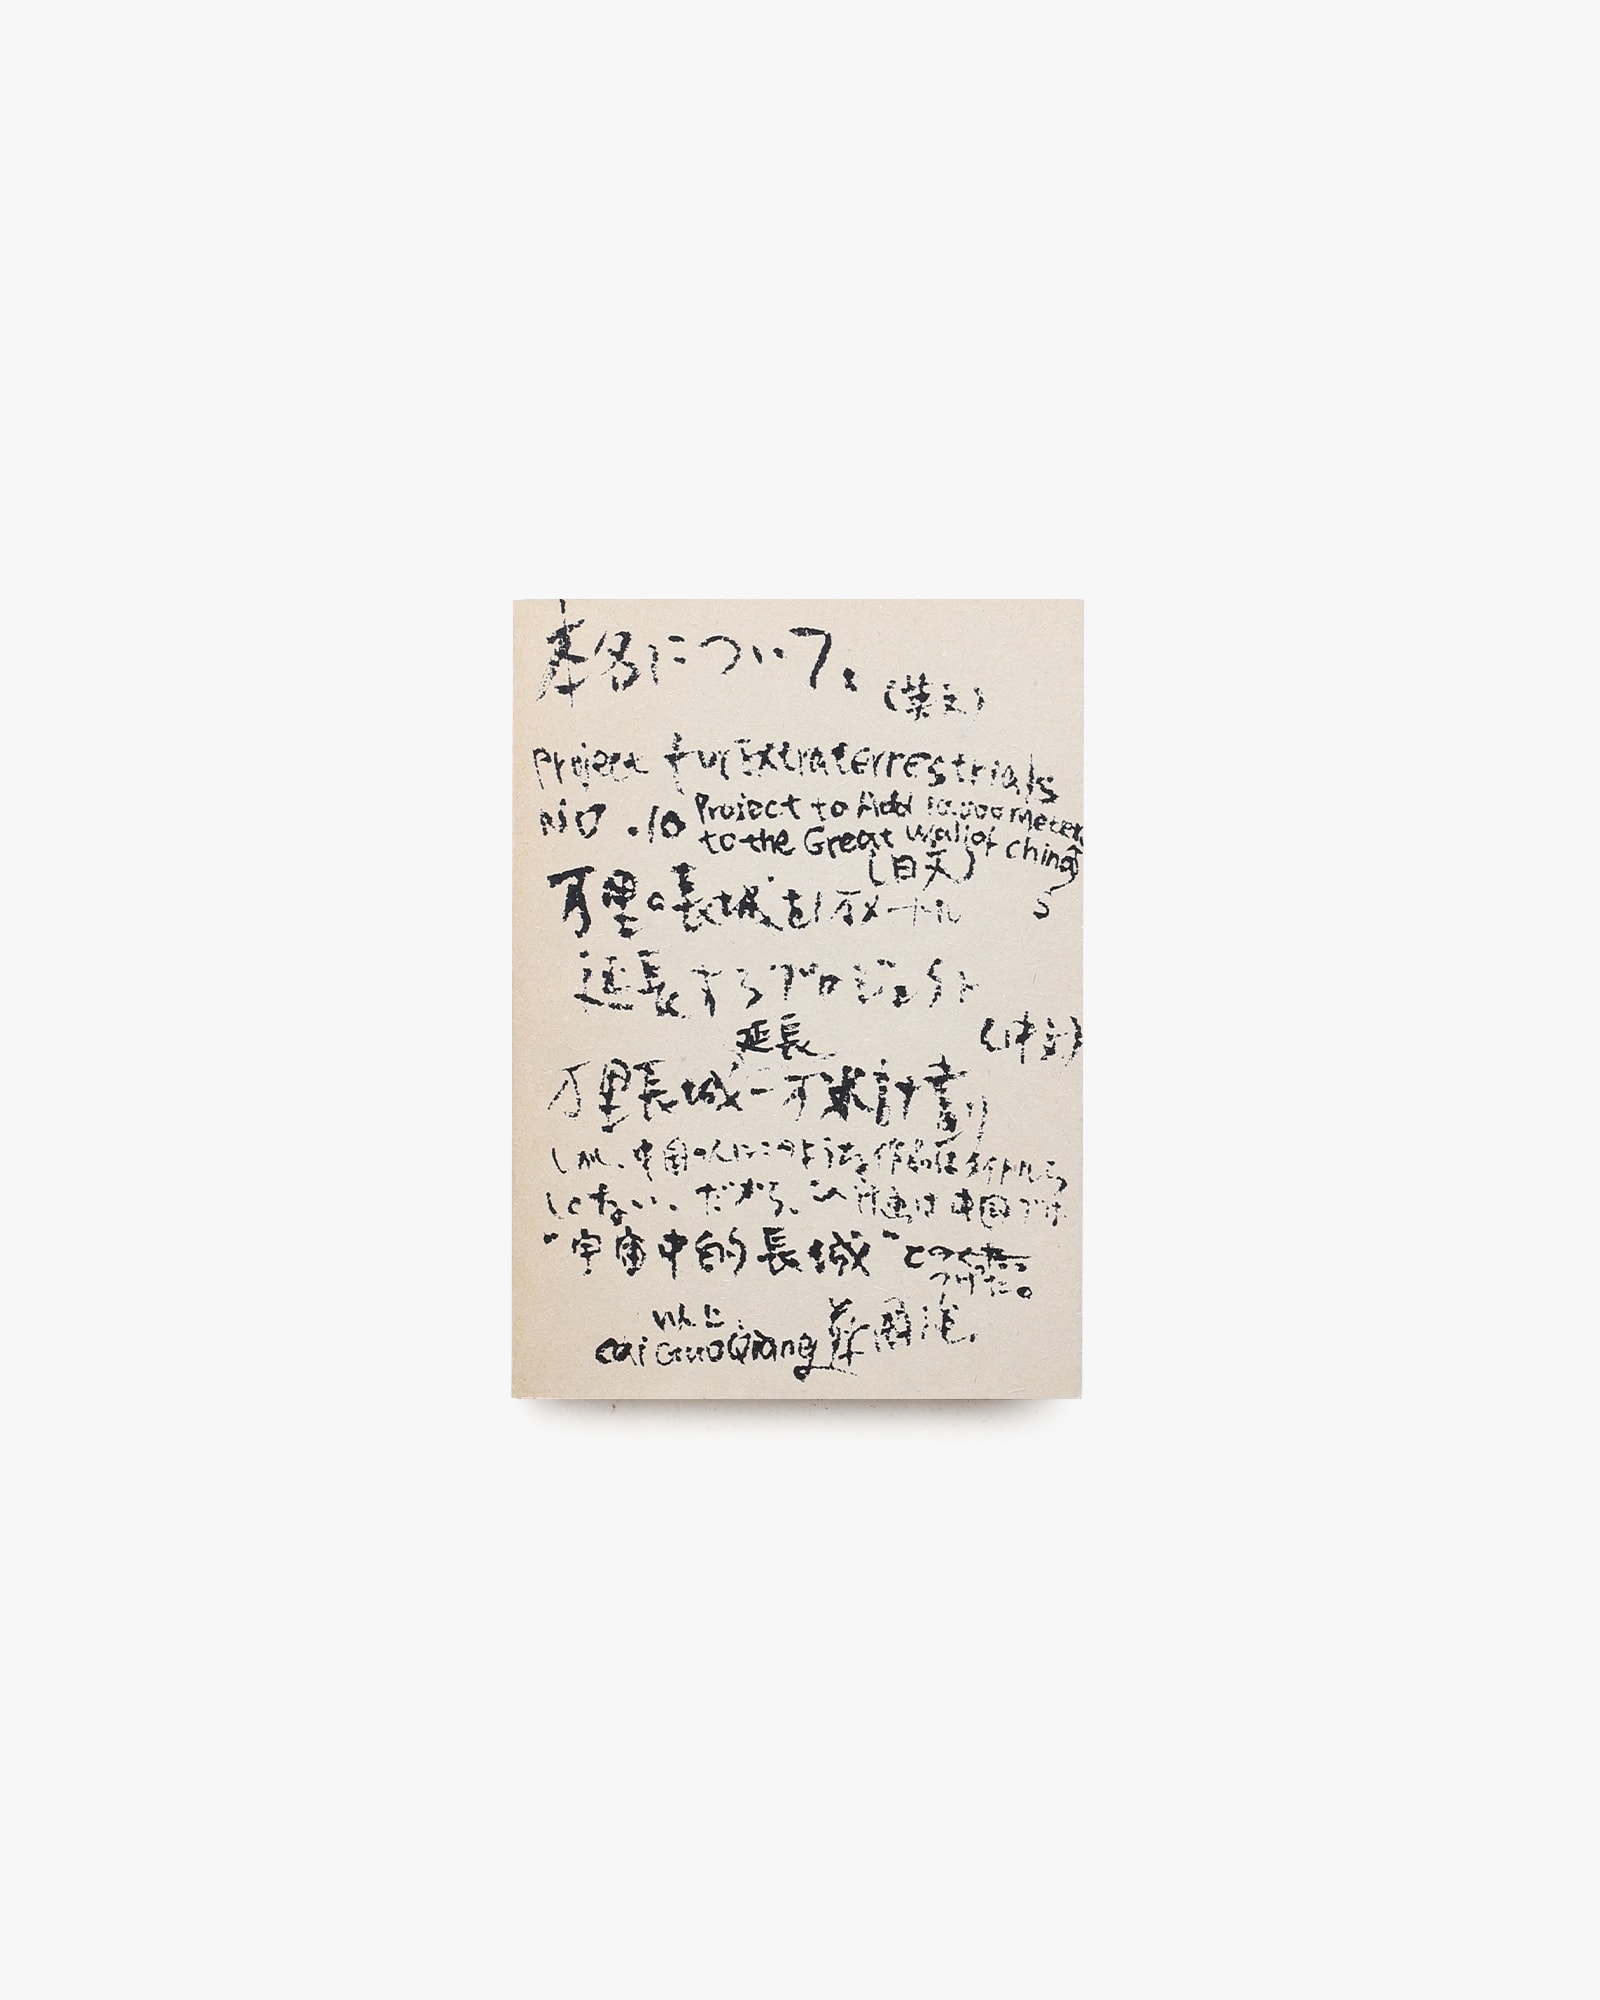 本名について。
(英文)
Project fur Extraterrestrials
NO.10 Project to Add 10,000 meters
to the Great Wall of China
(日文)
万里の長城を1万メートル
延長するプロジェクト
(中文)
延長
万里長城一万米計劃
しかし、中国の人にこのような作品はタイトルら
しくない。だから、この計画は中国では
"宇宙中的長城"と
つけた。
以上
Cai Guo Qiang 蔡國強